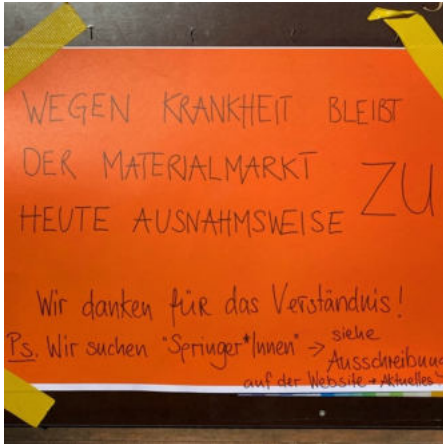 WEGEN KRANKHEIT BLEIBT
DER MATERIALMARKT ZU
HEUTE AUSNAHMSWEISE
Wir danken für das Verständnis!
Ps. Wir suchen "Springer*Innen" → siehe
Ausschreibung
auf der Website → Aktuelles